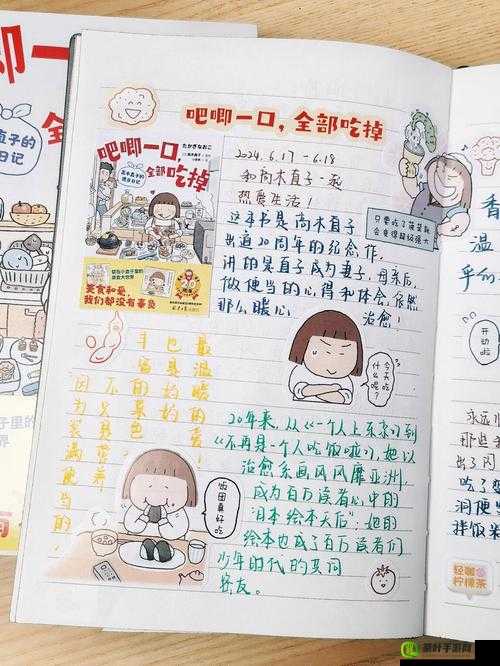 吧唧一口，全部吃掉
たかぎなおこ
吧唧一口，
全部吃掉
美食和爱，
我们都没有辜负
2024.6.17-6.18
和高木直子一起
热爱生活！
这本书是高木直子
出道20周年的纪念作，
讲的是直子成为妻子、母亲后，
做便当的心得和体会，依然
那么暖心
治愈！
只要吃了菠菜就
会变得超级强大
今天吃
什么呢？
最温暖的爱！
也是灼灼的
手写的菜色
因为装满便当的
饭团真好吃
20年来，从《一个人上东京》到
《不再是一个人吃饭啦》，她以
治愈系画风风靡亚洲，
成为百万读者心中的
"日本绘本天后"，她的
绘本也成了百万读者们
少年时代的共同
密友。
直子的
日记
子里的
世界
香
温
乎的
开动
啦
永远
那些
出了门
吃了
洞便当
拌饭
轻馨
柠檬茶
茶叶手游网